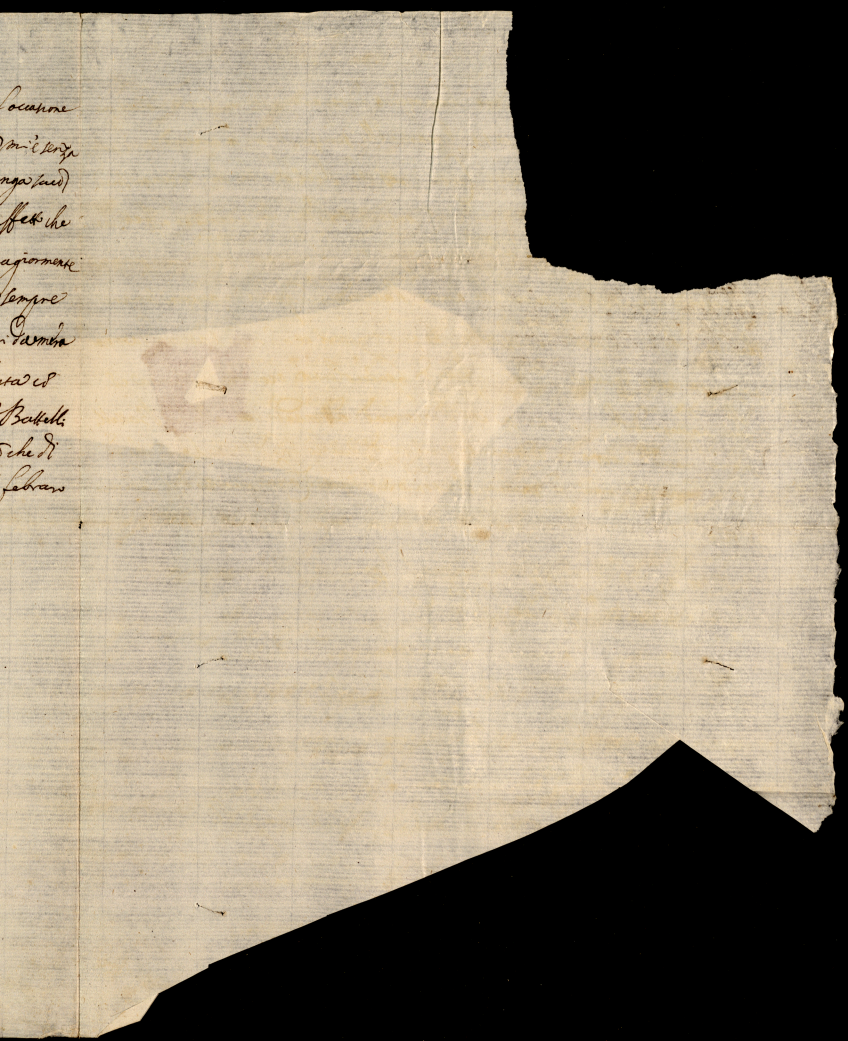 l'occasione
mi è senza
nga
ffetti che
agiormente
sempre
ri da mera
uta cō
Battelli
che di
febraro